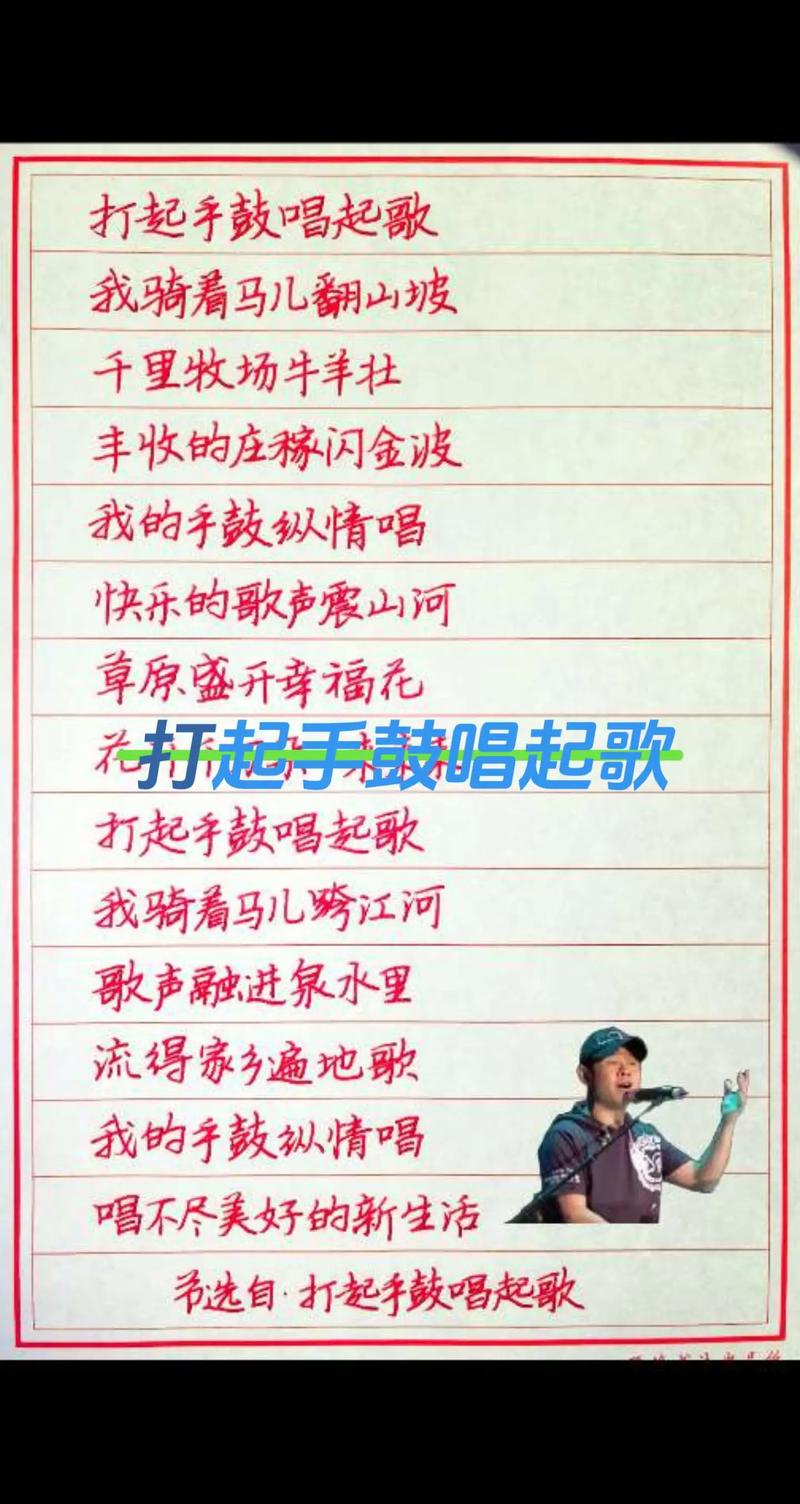 打起手鼓唱起歌
我骑着马儿翻山坡
千里牧场牛羊壮
丰收的庄稼闪金波
我的手鼓纵情唱
快乐的歌声震山河
草原盛开幸福花
花
打起手鼓唱起歌
打起手鼓唱起歌
我骑着马儿跨江河
歌声融进泉水里
流得家乡遍地歌
我的手鼓纵情唱
唱不尽美好的新生活
节选自·打起手鼓唱起歌